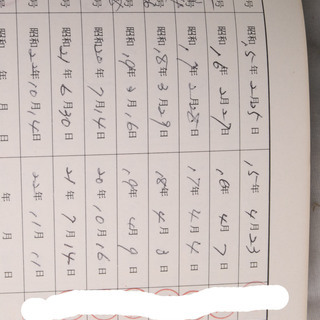 号
昭和15年2月25日
15年4月23日
号
昭和16年2月27日
16年4月7日
号
昭和17年2月28日
17年4月4日
号
昭和18年3月29日
18年4月3日
号
昭和19年3月16日
19年4月9日
号
昭和20年7月14日
20年10月16日
号
昭和21年6月30日
21年7月14日
号
昭和22年10月14日
22年11月11日
年 月 日